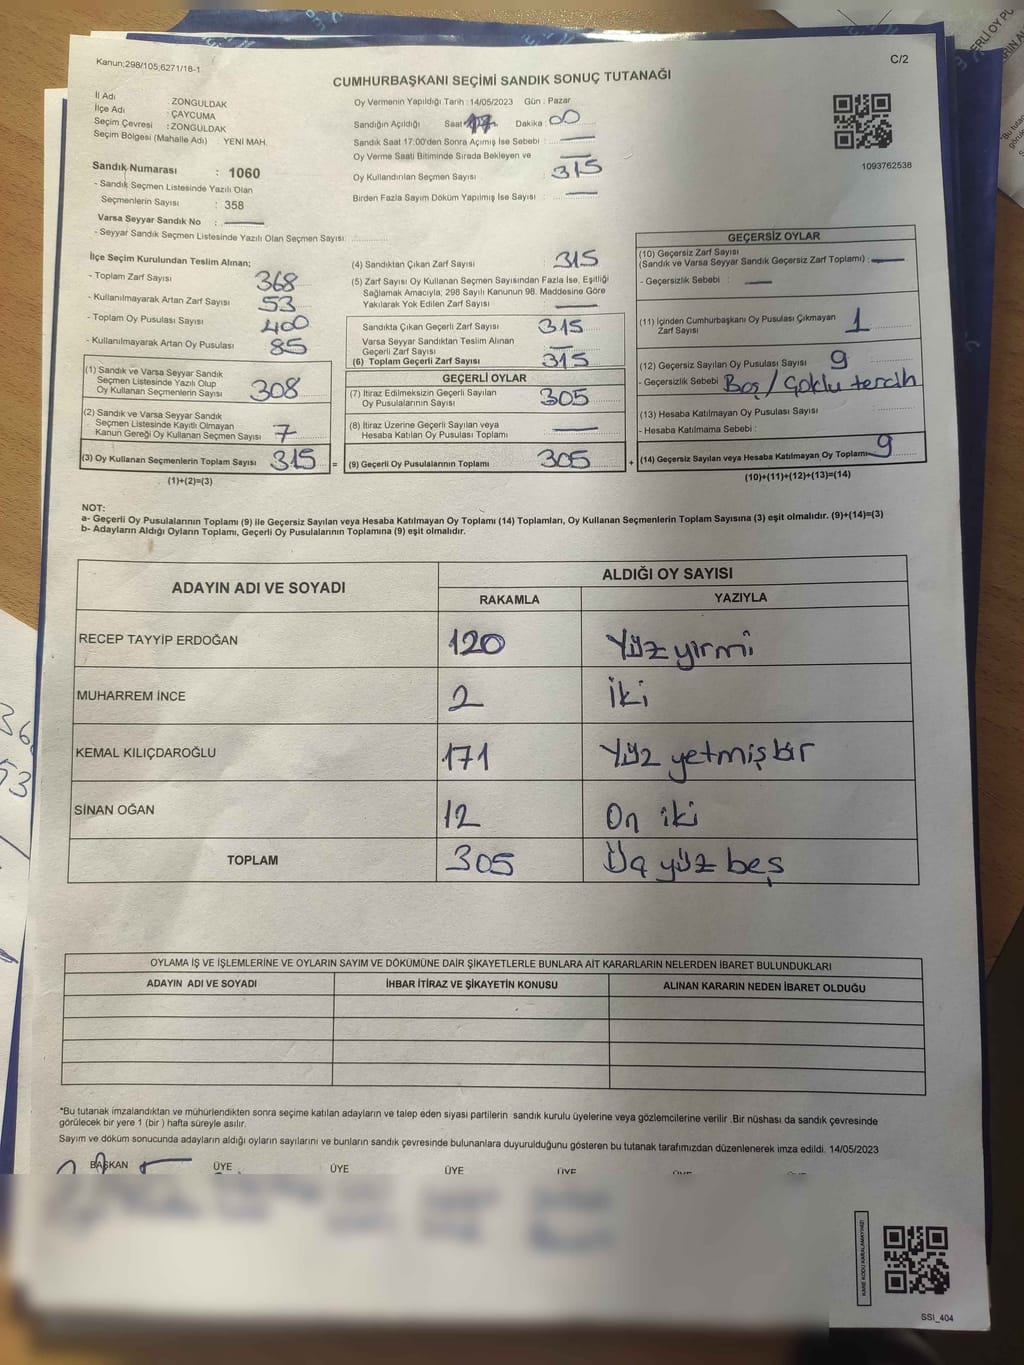 Kanun;298/105;6271/18-1
C/2
CUMHURBAŞKANI SEÇİMİ SANDIK SONUÇ TUTANAĞI
İl Adı : ZONGULDAK
İlçe Adı : ÇAYCUMA
Seçim Çevresi : ZONGULDAK
Seçim Bölgesi (Mahalle Adı) YENİ MAH.
Sandık Numarası : 1060
- Sandık Seçmen Listesinde Yazılı Olan
Seçmenlerin Sayısı : 358
Varsa Seyyar Sandık No :
- Seyyar Sandık Seçmen Listesinde Yazılı Olan Seçmen Sayısı:
Oy Vermenin Yapıldığı Tarih : 14/05/2023 Gün : Pazar
Sandığın Açıldığı Saat : 17 Dakika : 00
Sandık Saat 17:00'den Sonra Açımış İse Sebebi :
Oy Verme Saati Bitiminde Sırada Bekleyen ve
Oy Kullandırılan Seçmen Sayısı : 315
Birden Fazla Sayım Döküm Yapılmış İse Sayısı :
1093762538
İlçe Seçim Kurulundan Teslim Alınan;
- Toplam Zarf Sayısı 368
- Kullanılmayarak Artan Zarf Sayısı 53
- Toplam Oy Pusulası Sayısı 400
- Kullanılmayarak Artan Oy Pusulası 85
(1) Sandık ve Varsa Seyyar Sandık
Seçmen Listesinde Yazılı Olup
Oy Kullanan Seçmenlerin Sayısı 308
(2) Sandık ve Varsa Seyyar Sandık
Seçmen Listesinde Kayıtlı Olmayan
Kanun Gereği Oy Kullanan Seçmen Sayısı 7
(3) Oy Kullanan Seçmenlerin Toplam Sayısı 315 =
(1)+(2)=(3)
(4) Sandıktan Çıkan Zarf Sayısı : 315
(5) Zarf Sayısı Oy Kullanan Seçmen Sayısından Fazla İse, Eşitliği
Sağlamak Amacıyla; 298 Sayılı Kanunun 98. Maddesine Göre
Yakılarak Yok Edilen Zarf Sayısı
Sandıkta Çıkan Geçerli Zarf Sayısı 315
Varsa Seyyar Sandıktan Teslim Alınan
Geçerli Zarf Sayısı
(6) Toplam Geçerli Zarf Sayısı 315
GEÇERLİ OYLAR
(7) İtiraz Edilmeksizin Geçerli Sayılan
Oy Pusulalarının Sayısı 305
(8) İtiraz Üzerine Geçerli Sayılan veya
Hesaba Katılan Oy Pusulası Toplamı
(9) Geçerli Oy Pusulalarının Toplamı 305 +
GEÇERSİZ OYLAR
(10) Geçersiz Zarf Sayısı
(Sandık ve Varsa Seyyar Sandık Geçersiz Zarf Toplamı) :
- Geçersizlik Sebebi :
(11) İçinden Cumhurbaşkanı Oy Pusulası Çıkmayan
Zarf Sayısı 1
(12) Geçersiz Sayılan Oy Pusulası Sayısı 9
- Geçersizlik Sebebi Boş / Çoklu tercih
(13) Hesaba Katılmayan Oy Pusulası Sayısı :
- Hesaba Katılmama Sebebi :
(14) Geçersiz Sayılan veya Hesaba Katılmayan Oy Toplamı 9
(10)+(11)+(12)+(13)=(14)
NOT:
a- Geçerli Oy Pusulalarının Toplamı (9) ile Geçersiz Sayılan veya Hesaba Katılmayan Oy Toplamı (14) Toplamları, Oy Kullanan Seçmenlerin Toplam Sayısına (3) eşit olmalıdır. (9)+(14)=(3)
b- Adayların Aldığı Oyların Toplamı, Geçerli Oy Pusulalarının Toplamına (9) eşit olmalıdır.
ADAYIN ADI VE SOYADI ALDIĞI OY SAYISI
RAKAMLA YAZIYLA
RECEP TAYYİP ERDOĞAN 120 Yüz yirmi
MUHARREM İNCE 2 İki
KEMAL KILIÇDAROĞLU 171 Yüz yetmiş bir
SİNAN OĞAN 12 On iki
TOPLAM 305 Üç yüz beş
OYLAMA İŞ VE İŞLEMLERİNE VE OYLARIN SAYIM VE DÖKÜMÜNE DAİR ŞİKAYETLERLE BUNLARA AİT KARARLARIN NELERDEN İBARET BULUNDUKLARI
ADAYIN ADI VE SOYADI İHBAR İTİRAZ VE ŞİKAYETİN KONUSU ALINAN KARARIN NEDEN İBARET OLDUĞU
*Bu tutanak imzalandıktan ve mühürlendikten sonra seçime katılan adayların ve talep eden siyasi partilerin sandık kurulu üyelerine veya gözlemcilerine verilir .Bir nüshası da sandık çevresinde
görülecek bir yere 1 (bir ) hafta süreyle asılır.
Sayım ve döküm sonucunda adayların aldığı oyların sayılarını ve bunların sandık çevresinde bulunanlara duyurulduğunu gösteren bu tutanak tarafımızdan düzenlenerek imza edildi. 14/05/2023
BAŞKAN ÜYE ÜYE ÜYE ÜYE
KARE KODU KARALAMAYINIZ!
SSI_404